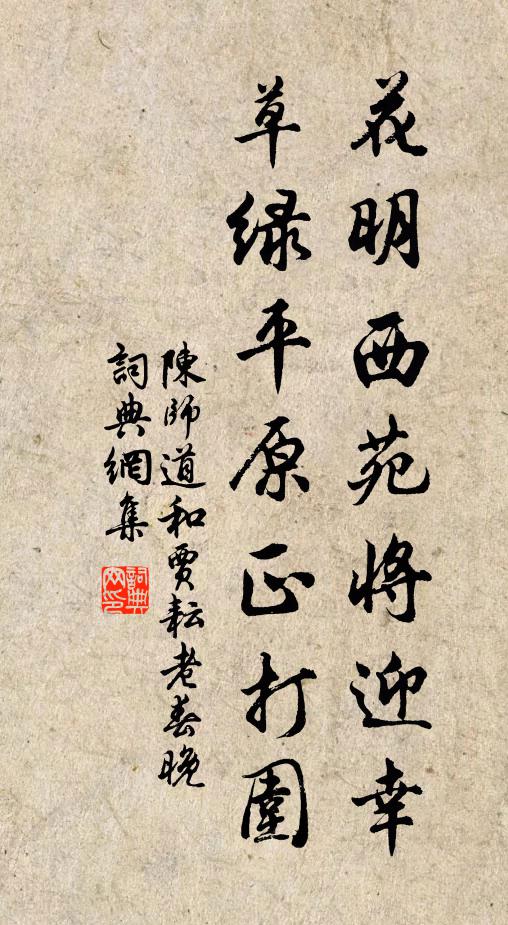 花明西苑將迎幸
草緑平原正打圍
陳師道和賈耘老春晚
詞典網集
詞典
网印